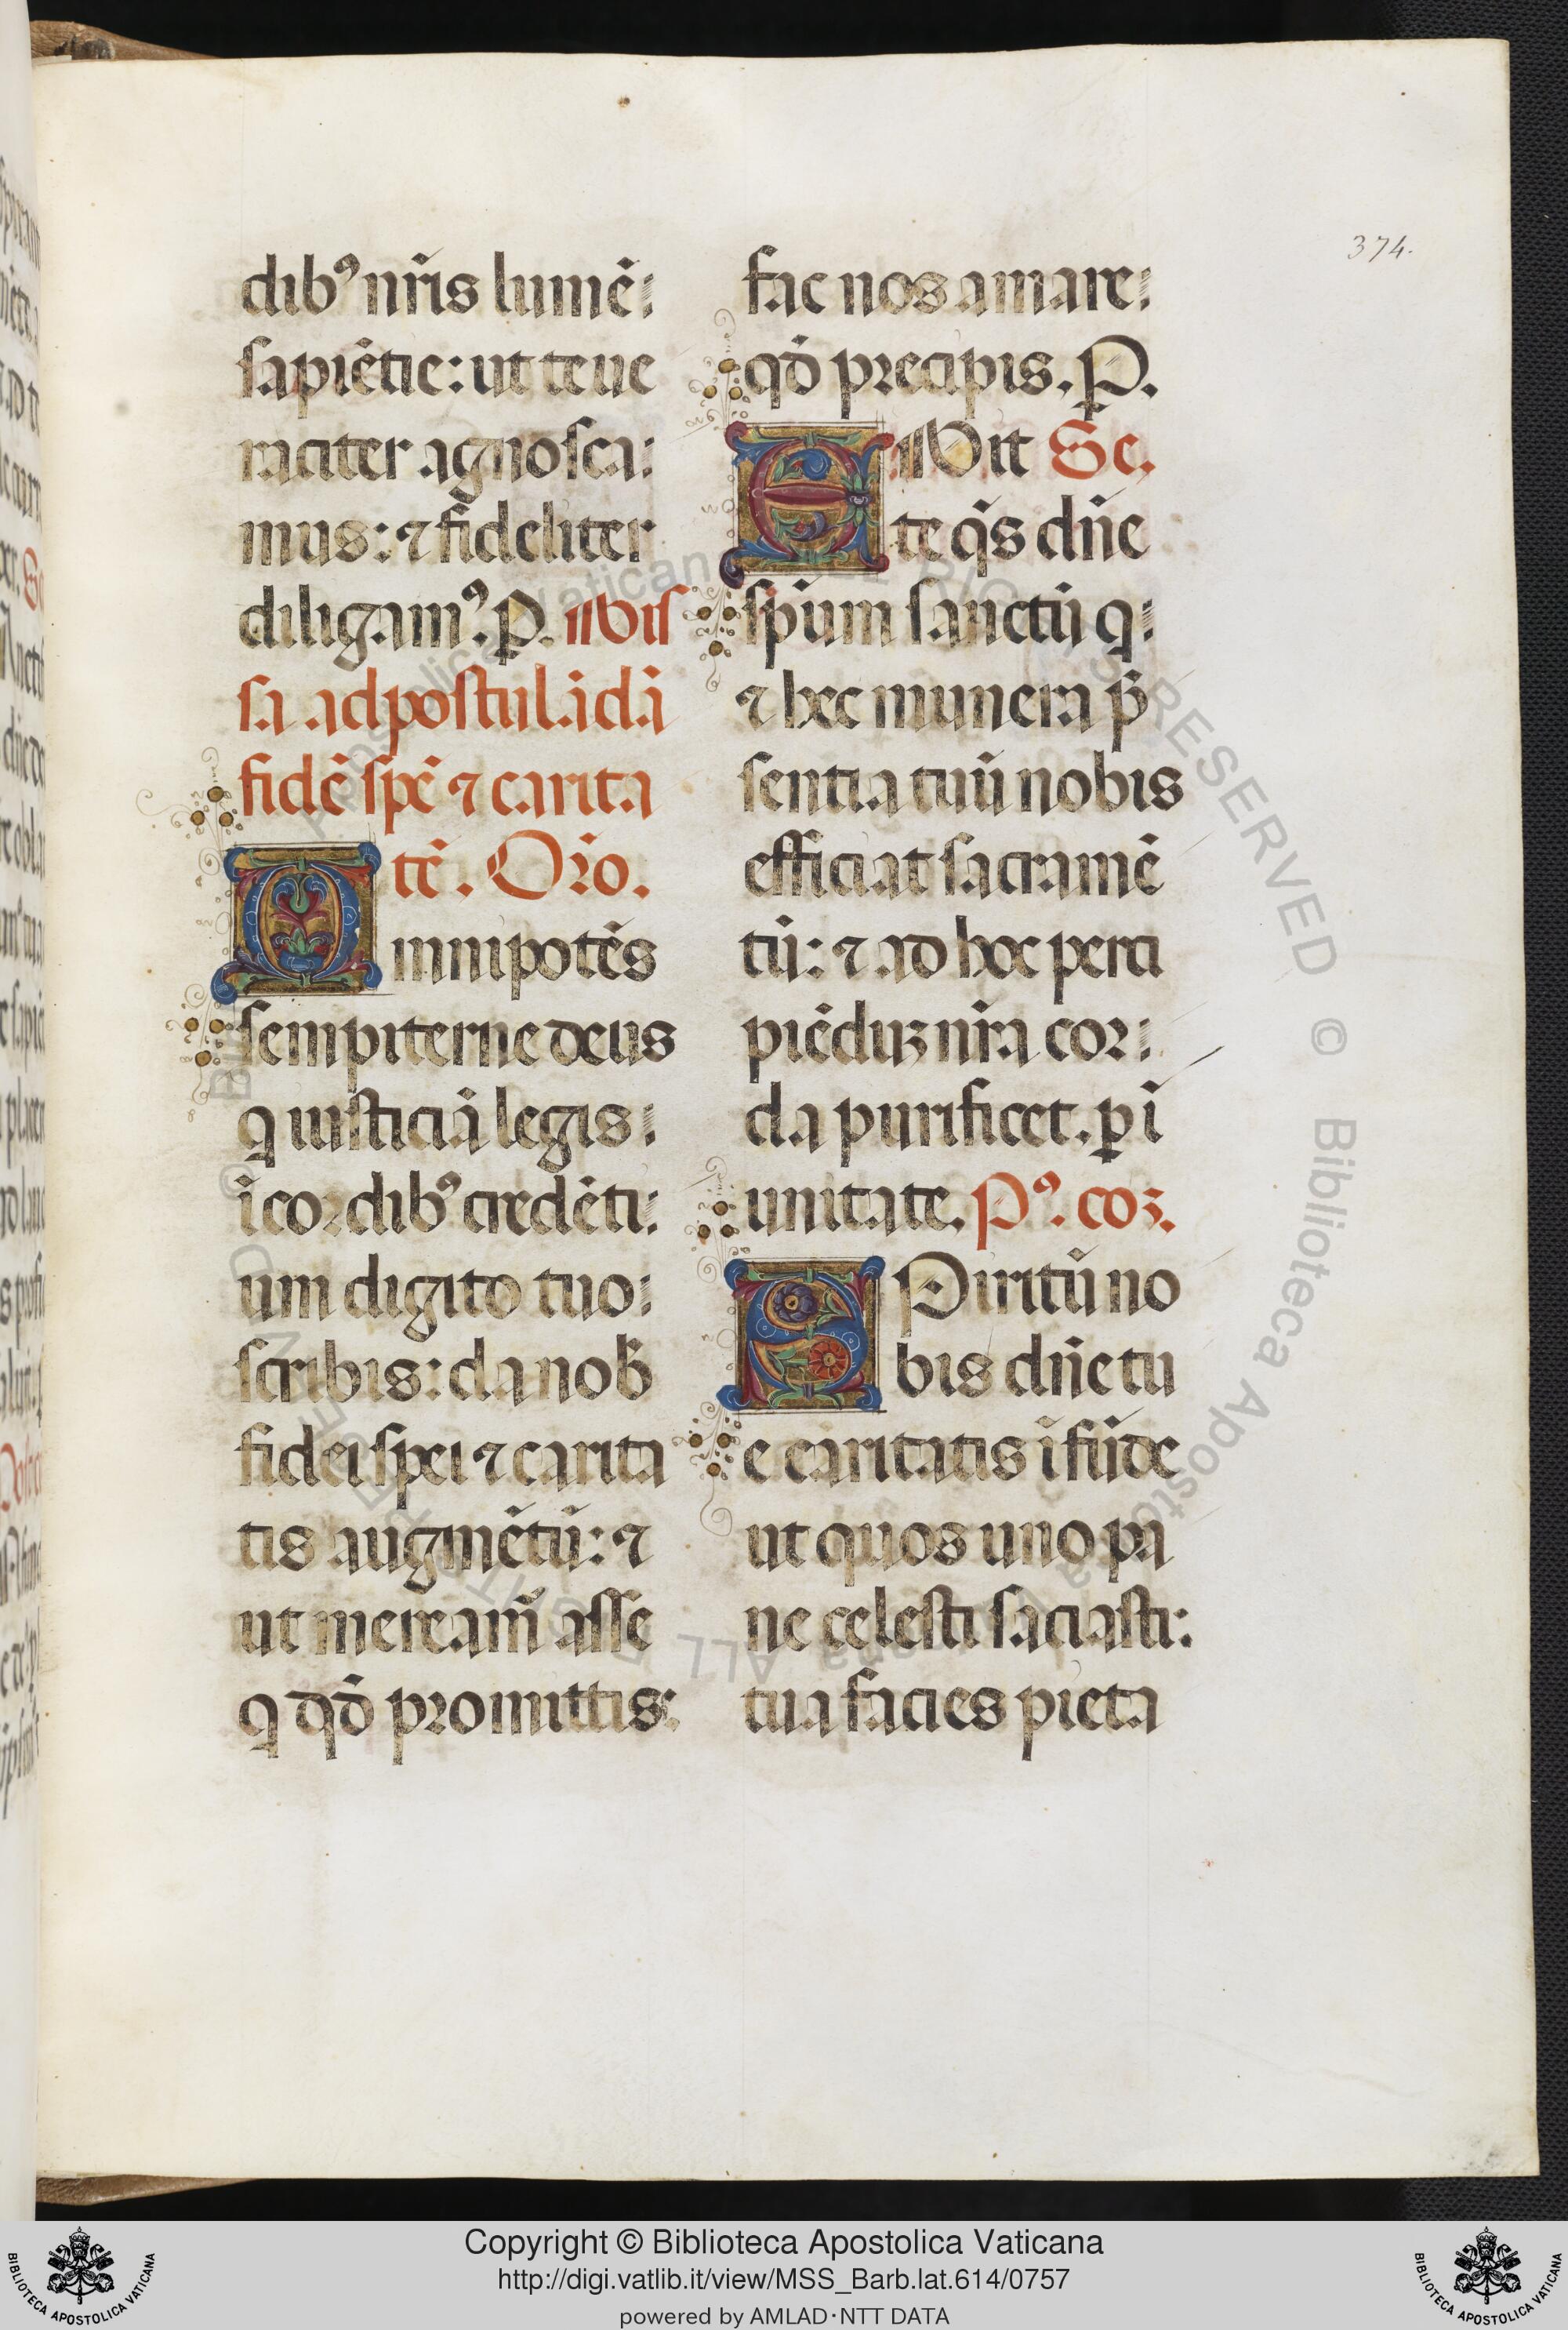 374.
dibꝰ nr̄is lumē
sapiētie: ut te ue
raciter agnosca
mus: ⁊ fideliter
diligamꝰ. P. Mis
sa ad postulādā
fidē spē ⁊ carita
tē. Orō.
Omnipotēs
sempiterne deus
q iusticiā legis
ī cordibꝰ credēti
um digito tuo
scribis: da nob̄
fidei spei ⁊ carita
tis augmētū: ⁊
ut meream̄ asse
q qd̄ promittis:
fac nos amare
qd̄ precipis. P.
EMit Se.
te q̄s dn̄e
spūm sanctū q
⁊ hec munera p̄
sentia tuū nobis
efficiat sacramē
tū: ⁊ ad hoc perci
piēduꝫ nr̄a cor
da purificet. ꝑ ī
unitate. Pꝰ. coꝫ.
SPiritū no
bis dn̄e tu
e caritatis īfūde
ut quos uno pa
ne celesti saciasti:
tua facies pieta
Copyright © Biblioteca Apostolica Vaticana
http://digi.vatlib.it/view/MSS_Barb.lat.614/0757
powered by AMLAD·NTT DATA
BIBLIOTECA APOSTOLICA VATICANA
BIBLIOTECA APOSTOLICA VATICANA